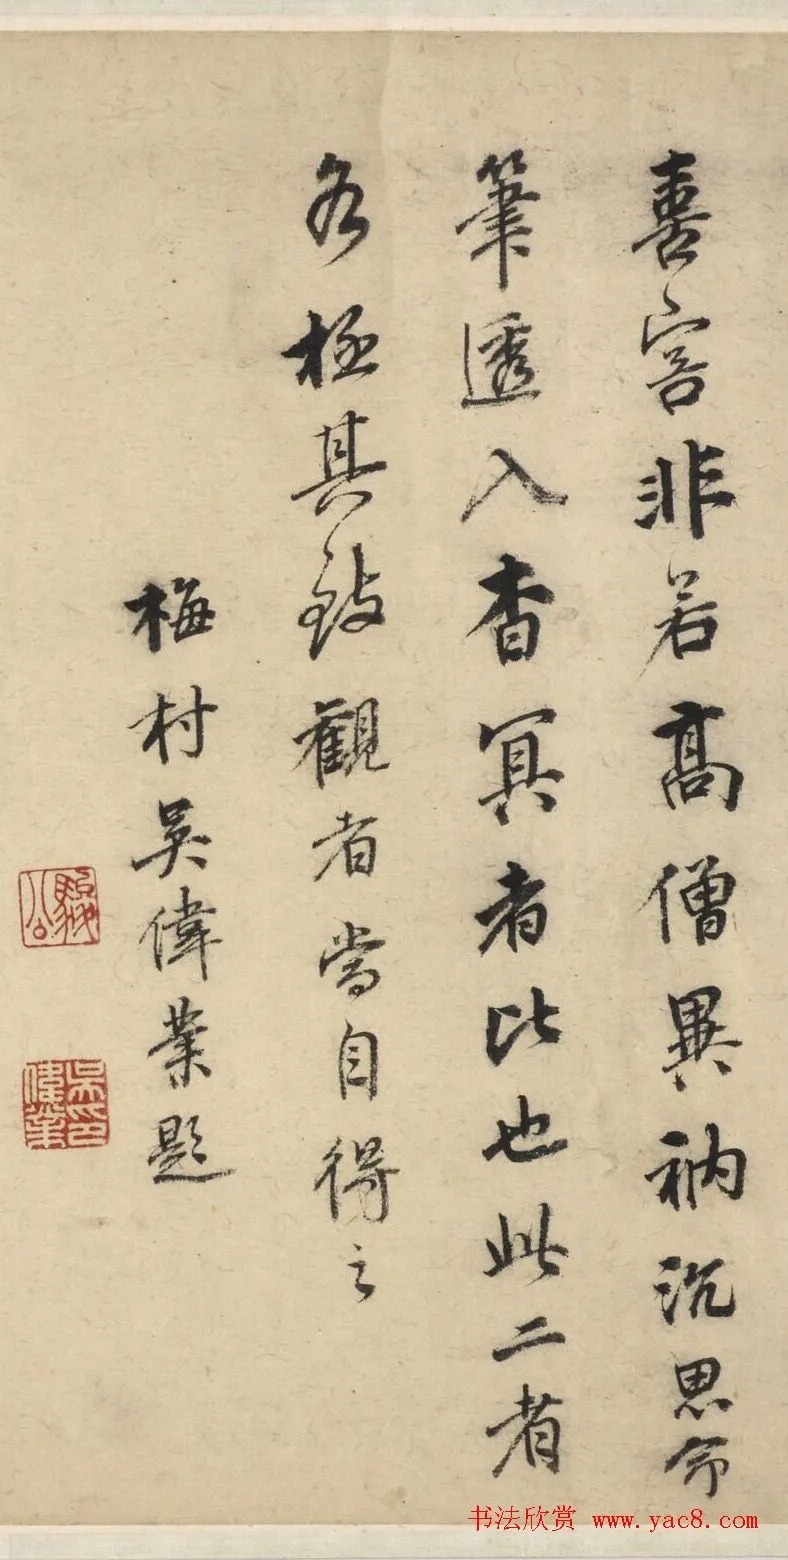 喜客非若高僧異衲沉思命
筆透入杳冥者比也此二者
各極其致觀者當自得之
梅村吳偉業題
駿公
吳印偉業
书法欣赏 www.yac8.com